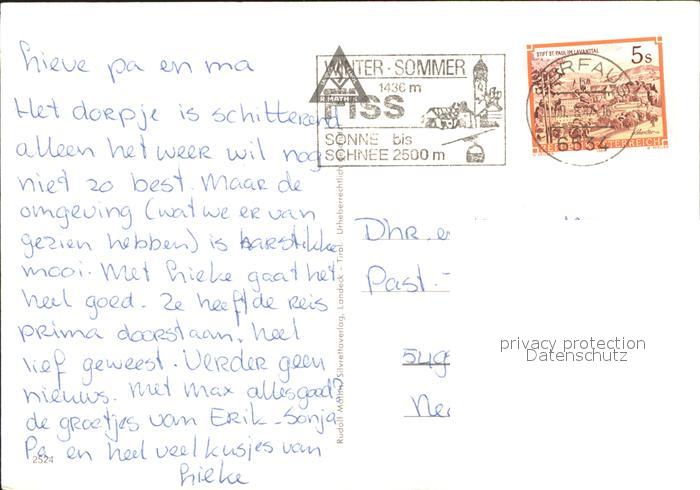 Lieve pa en ma
Het dorpje is schitterend
alleen het weer wil nog
niet zo best. Maar de
omgeving (wat we er van
gezien hebben) is harstikke
mooi. Met Lieke gaat het
heel goed. Ze heeft de reis
prima doorstaan. heel
lief geweest. Verder geen
nieuws. Met Max alles goed?
de groetjes van Erik - Sonja
Pa en heel veel kusjes van
Lieke
2524
Rudolf Mathis, Silvrettaverlag, Landeck - Tirol. Urheberrechtlich
WINTER · SOMMER
1436 m
R MATHIS
FISS
SONNE bis
SCHNEE 2500 m
STIFT ST. PAUL IM LAVANTTAL
5 s
6534
Dhr. e
Past.
privacy protection
Datenschutz